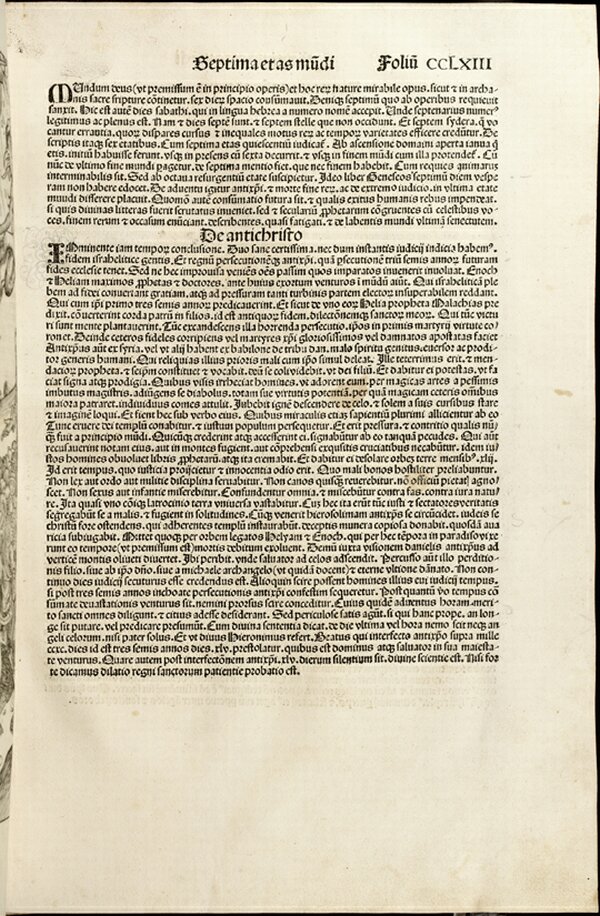 Septima etas mūdi Foliū CCLXIII
MUndum deus (vt premissum ē in principio operis) et hoc rerū nature mirabile opus. sicut ⁊ in archa-
nis sacre scripture cōtinetur. sex dierū spacio consūmauit. Deniqȝ septimū quo ab operibus requieuit
sanxit. Hic est autē dies sabathi. qui in lingua hebrea a numero nomē accepit. Unde septenarius numerꝰ
legitimus ac plenus est. Nam ⁊ dies septē sunt. ⁊ septem stelle que non occidunt. Et septem sydera. q̄ vo
cantur errantia. quorū dispares cursus ⁊ inequales motus rerū ac temporū varietates efficere credūtur. De
scriptis itaqȝ sex etatibus. Cum septima etas quiescentiū iudicaĩ. Ab ascensione domini aperta ianua q̄
etis. initiū habuisse ferunt. vsqȝ in presens cū sexta decurrit. ⁊ vsqȝ in finem mūdi cum illa protendeĩ. Cū
nūc de vltimo fine mundi pagetur. de septima mentio fiet. que nec finem habebit. Cum requies animarū
interminabilis sit. Sed ab octaua resurgentiū etate suscipietur. Ideo liber Geneseos septimū diem vespe
ram non habere edocet. De aduentu igitur antixp̄i. ⁊ morte fine rerū. ac de extremo iudicio. in vltima etate
mundi differere placuit. Quomō autē consumatio futura sit. ⁊ qualis exitus humanis rebus impendeat.
si quis diuinas litteras fuerit scrutatus inueniet. sed ⁊ secularium ꝓphetarum cōgruentes cū celestibus vo-
ces. finem rerum ⁊ occasum enūciant. describentes. quasi fatigati. ⁊ de labentis mundi vltimā senectutem.
De antichristo
IMminente iam temporū conclusione. Duo sane certissima. nec dum instantis iudicij indicia habemꝰ.
fidem israhelitice gentis. Et regnū persecutionēqȝ antixp̄i. quā ꝑsecutionē triū semis annorū futuram
fides ecclesie tenet. Sed ne hec improuisa veniēs oēs passim quos imparatos inuenerit inuoluat. Enoch
⁊ Heliam maximos ꝓphetas ⁊ doctores. ante huius exortum venturos ī mūdū aiūt. Qui israheliticā ple
bem ad fidei conuerāt gratiam. atqȝ ad pressuram tanti turbinis partem electorū insuperabilem reddant.
Qui cum ip̄i primo tres semis annos predicauerint. Et sicut de vno eorū Helia propheta Malachias pre
dixit. cōuerterint corda patrū in filios. id est antiquorū fidem. dilectōnēmqȝ sanctorū meorū. Qui tūc victu
ri sunt mente plantauerint. Tūc excandescens illa horrenda persecutio. ip̄os in primis martyrij virtute co/
ronet. Deinde ceteros fideles corripiens vel martyres xp̄i gloriosissimos vel damnatos apostatas faciet
Antixp̄us aūt ex syria. vel vt alij habent ex babilone de tribu dan. malo spiritu genitus. euersor ac prodi-
tor generis humani. Qui reliquias illius prioris mali cum ip̄o simul deleat. Ille teterrimus erit. ⁊ men-
daciorū propheta. ⁊ seip̄m constituet ⁊ vocabit. deū se colivideb̄it. vt dei filiū. Et dabitur ei potestas. vt fa
ciat signa atqȝ prodigia. Quibus visis irrheciat homīnes. vt adorent eum. per magicas artes a pessimis
imbutus magistris. adiūgens se diabolus. totam sue virtutis potentiā. per quā magicam ceteris omībus
maiora patraret. induiduus comes attulit. Iubebit ignē descendere de celo. ⁊ solem a suis cursibus stare
⁊ imaginē loqui. Et fient hec sub verbo eius. Quibus miraculis etiaȝ sapientiū plurimi allicientur ab eo
Tunc eruere dei templū conabitur. ⁊ iustum populum persequetur. Et erit pressura. ⁊ contritio qualis nū
q̄ fuit a principio mūdi. Quicūqȝ crederint atqȝ accesserint ei. signabūtur ab eo tanquā pecudes. Qui aūt
recusauerint notam eius. aut in montes fugient. aut cōprehensi exquisitis cruciatibus necabūtur. idem iu/
stos homines obuoluet libris ꝓphetarū. atqȝ ita cremabit. Et dabitur ei desolare orbeȝ terre mensibꝰ. xlij.
Id erit tempus. quo iusticia proijcietur ⁊ innocentia odio erit. Quo mali bonos hostiliter preliabuntur.
Non lex aut ordo aut militie disciplina seruabitur. Non canos quisqȝ reuerebitur. nō officiū pietat̄ agno/
scet. Non sexus aut infantie miserebitur. Confundentur omnia. ⁊ miscebūtur contra fas. contra iura natu/
re. Ita quasi vno cōiqȝ latrocinio terra vniuersa vastabitur. Cuȝ hec ita erūt tūc iusti ⁊ sectatores veritatis
segregabūt se a malis. ⁊ fugient in solitudines. Cūqȝ venerit hierosolimam antixp̄s se circūcidet. iudeis se
christū fore ostendens. qui adherentes templū instaurabūt. deceptis munera copiosa donabit. quosdā aua
ricia subiugabit. Mittet quoqȝ per orbem legatos Helyam ⁊ Enoch. qui per hec tēpora in paradiso vixe
runt eo tempore (vt premissum est) mortis debitum exoluent. Demū iuxta visionem danielis antixp̄us ad
verticē montis oliueti diuertet. Ibi peribit. vnde saluator ad celos adscendit. Percusso aūt illo perditio-
nis filio. siue ab ip̄o dn̄o. siue a michaele archangelo (vt quidā docent) ⁊ eterne vltione dānato. Non con-
tinuo dies iudicij secuturus esse credendus est. Alioquin scire possent homines illius eui iudicij tempus.
si post tres semis annos inchoate persecutionis antixp̄i confestim sequeretur. Post quantū vō tempus cō
sūmate deuastationis venturus sit. nemini prorsus scire conceditur. Cuius quidē aduentus horam meri-
to sancti omnes diligunt. ⁊ citius adesse desiderant. Sed periculose satis agūt. si qui hanc prope. an lon-
ge sit putare. vel predicare presumūt. Cum diuina sententia dicat. de die vltima vel hora nemo scit neqȝ an
geli celorum. nisi pater solus. Et vt diuus Hieronimus refert. Beatus qui interfecto antixp̄o supra mille
ccxc. dies id est tres semis annos dies. xlv. prestolatur. quibus est dominus atqȝ saluator in sua maiesta-
te venturus. Quare autem post interfectōnem antixp̄i. xlv. dierum silentium sit. diuine scientie est. Nisi for
te dicamus dilatio regni sanctorum patientie probatio est.